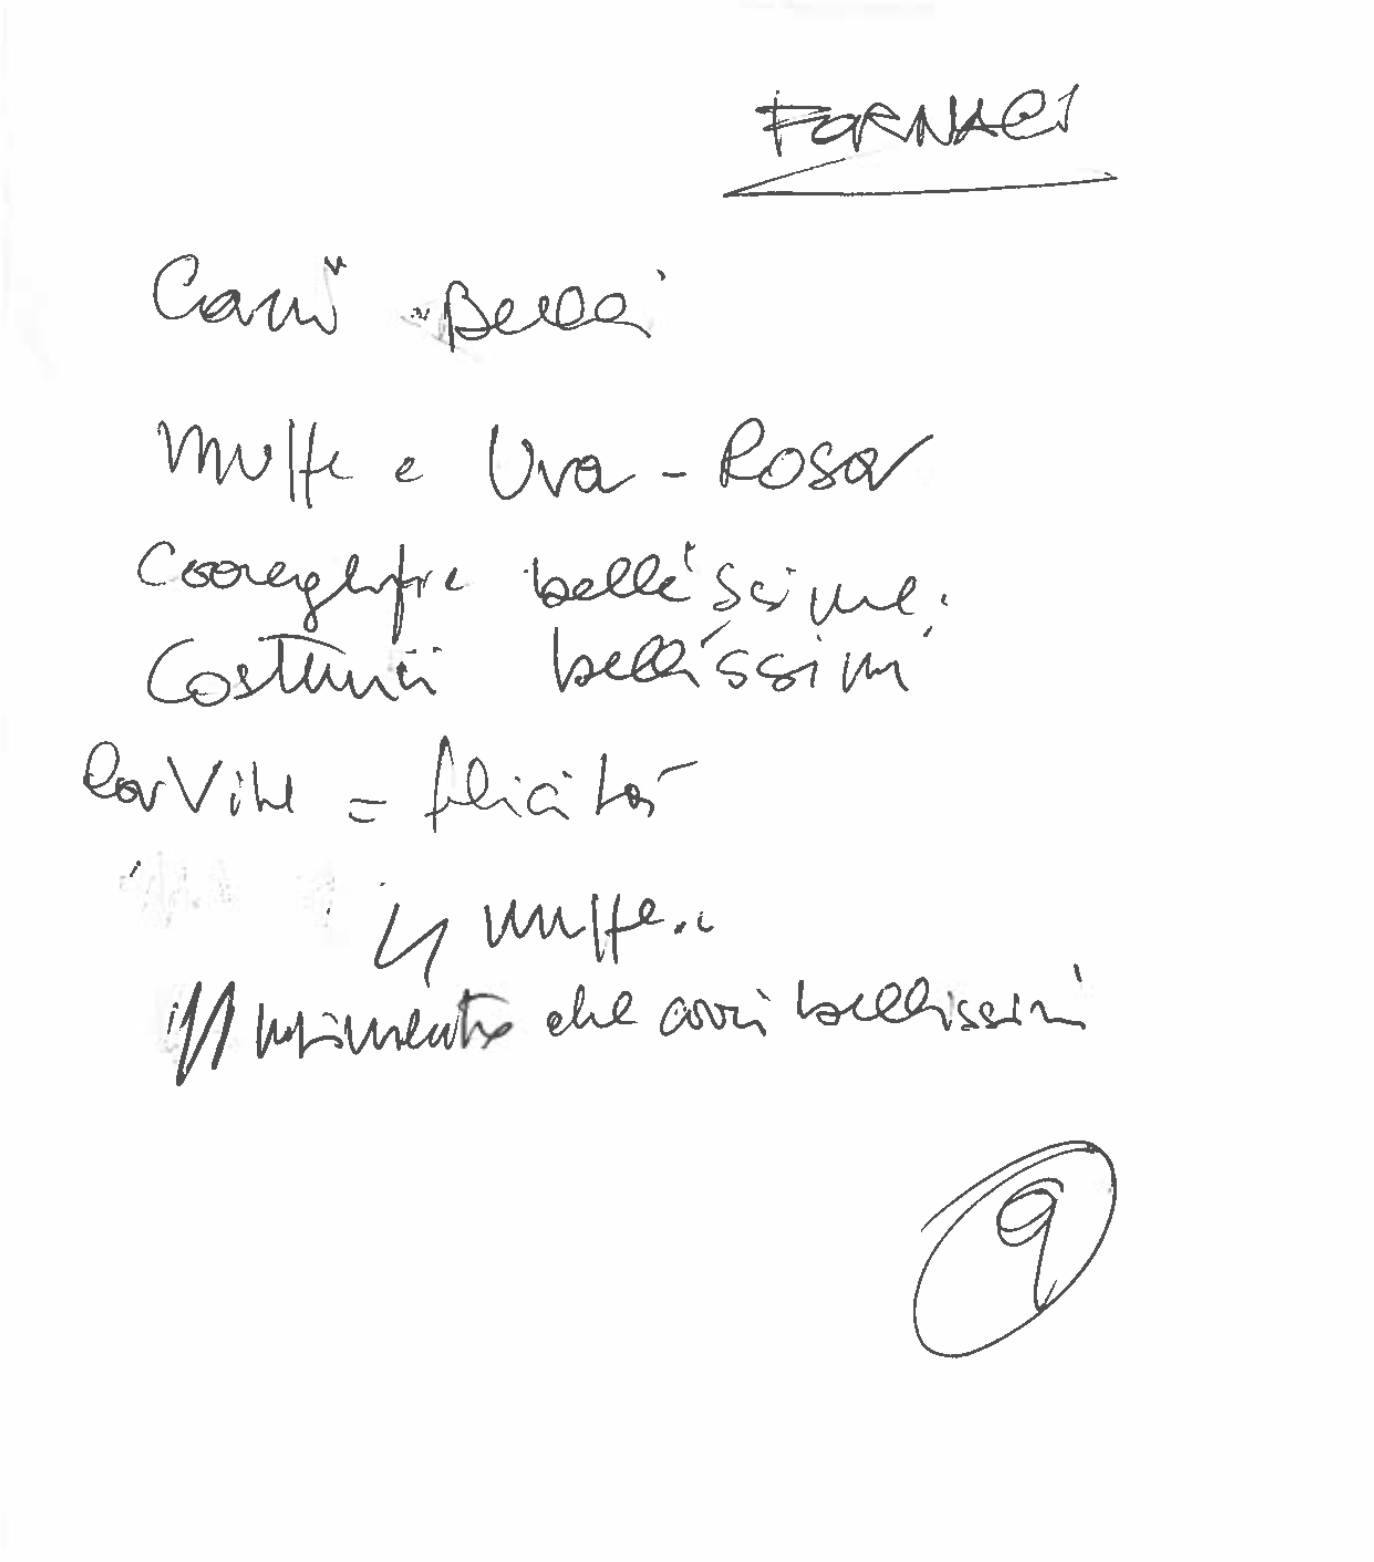 FORNACI
Carri Belli
Multe e Uva - Rosa
Coreografie bellissime.
Costumi bellissimi
La Vite = felicità
Multe..
che carri bellissimi
9